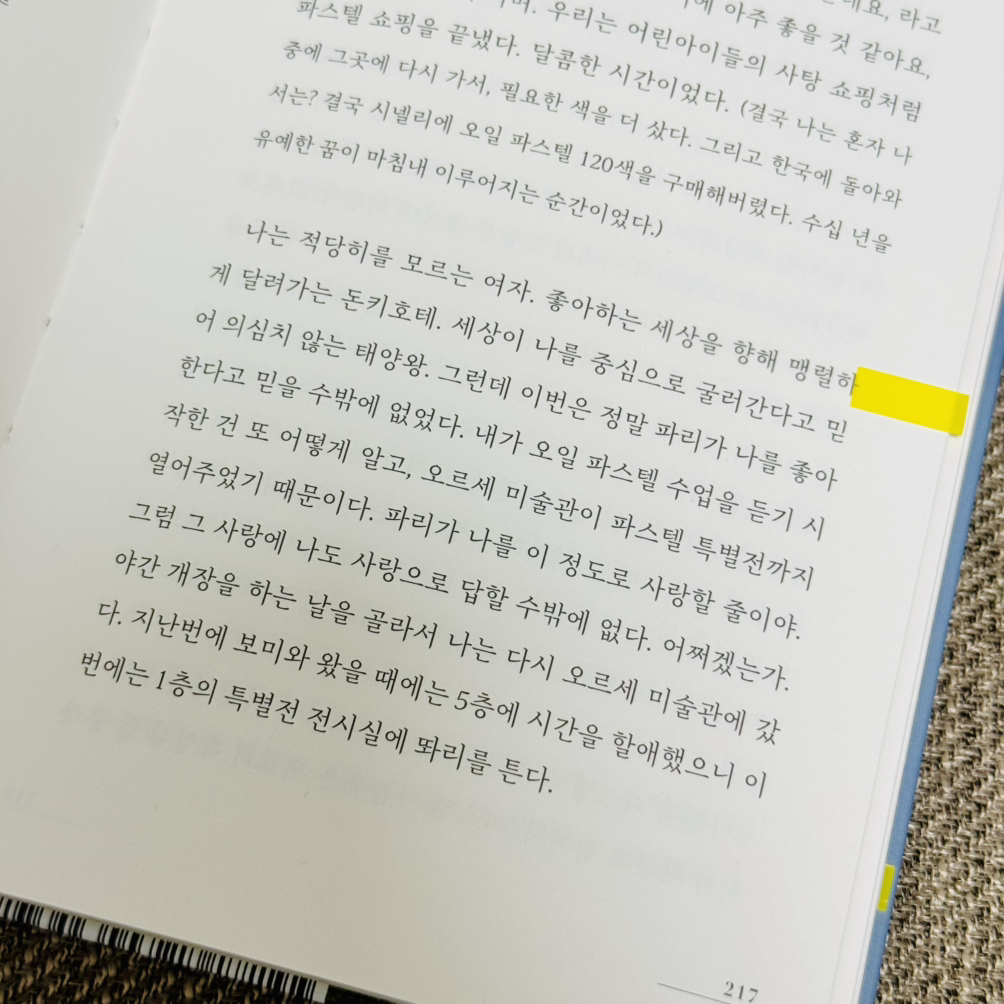 네요, 라고
에 아주 좋을 것 같아요,
며. 우리는 어린아이들의 사탕 쇼핑처럼
파스텔 쇼핑을 끝냈다. 달콤한 시간이었다. (결국 나는 혼자 나
중에 그곳에 다시 가서, 필요한 색을 더 샀다. 그리고 한국에 돌아와
서는? 결국 시넬리에 오일 파스텔 120색을 구매해버렸다. 수십 년을
유예한 꿈이 마침내 이루어지는 순간이었다.)
나는 적당히를 모르는 여자. 좋아하는 세상을 향해 맹렬하
게 달려가는 돈키호테. 세상이 나를 중심으로 굴러간다고 믿
어 의심치 않는 태양왕. 그런데 이번은 정말 파리가 나를 좋아
한다고 믿을 수밖에 없었다. 내가 오일 파스텔 수업을 듣기 시
작한 건 또 어떻게 알고, 오르세 미술관이 파스텔 특별전까지
열어주었기 때문이다. 파리가 나를 이 정도로 사랑할 줄이야.
그럼 그 사랑에 나도 사랑으로 답할 수밖에 없다. 어쩌겠는가.
야간 개장을 하는 날을 골라서 나는 다시 오르세 미술관에 갔
다. 지난번에 보미와 왔을 때에는 5층에 시간을 할애했으니 이
번에는 1층의 특별전 전시실에 똬리를 튼다.
217